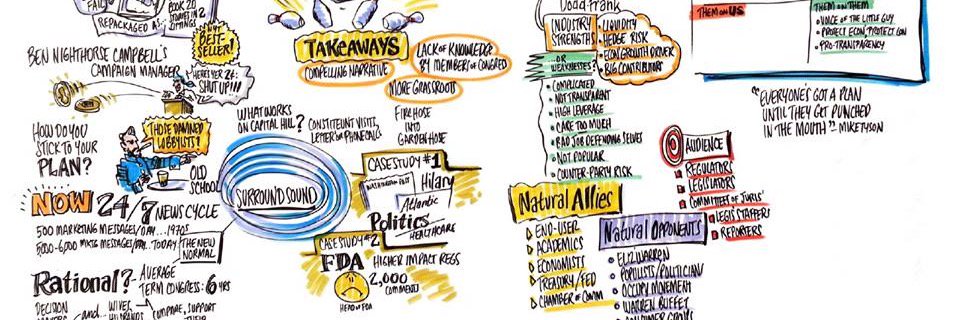 FAIL
REPACKAGED AS:
BOOK 20
STORIES IN 2
SITTINGS
BEST-
SELLER!
BEN NIGHTHORSE CAMPBELL'S
CAMPAIGN MANAGER
HERE'S YER 2¢:
SHUT UP!!!
HOW DO YOU
STICK TO YOUR
PLAN?
THOSE DAMNED
LOBBYISTS!
OLD
SCHOOL
NOW 24/7 NEWS CYCLE
500 MARKETING MESSAGES/DAY...1970s
5000-6000 MKTG MESSAGES/DAY...TODAY
THE NEW
NORMAL
Rational?
AVERAGE
TERM CONGRESS: 6 YRS
DECISION
MAKERS
and...
WIVES
HUSBANDS
COMPARE, SUPPORT
THEIR
TAKEAWAYS
COMPELLING NARRATIVE
LACK OF KNOWLEDGE
BY MEMBERS OF CONGRESS
MORE GRASSROOTS
WHAT WORKS
ON CAPITAL HILL?
CONSTITUENT VISITS,
LETTERS OR PHONE CALLS
FIRE HOSE
INTO
GARDEN HOSE
SURROUND SOUND
CASE STUDY #1
WASHINGTON POST
Hilary
Atlantic
Politics
HEALTHCARE
CASE STUDY #2
FDA
HEAD OF FDA
HIGHER IMPACT REGS
2,000
COMMENTS
Dodd-Frank
INDUSTRY
STRENGTHS
• LIQUIDITY
• HEDGE RISK
• ECON GROWTH DRIVER
• BIG CONTRIBUTORS
OR
WEAKNESSES?
• COMPLICATED
• NOT TRANSPARENT
• HIGH LEVERAGE
• CARE TOO MUCH
• BAD JOB DEFENDING SELVES
• NOT POPULAR
• COUNTER-PARTY RISK
Natural Allies
END-USER
ACADEMICS
ECONOMISTS
TREASURY/FED
CHAMBER OF COMM
Natural OPPONENTS
ELIZ WARREN
POPULISTS/POLITICIAN
OCCUPY MOVEMENT
WARREN BUFFET
CONSUMER GROUPS
AUDIENCE
REGULATORS
LEGISLATORS
COMMITTEES OF JURIS'
LEGIS STAFFERS
REPORTERS
THEM ON US
THEM ON THEM
• VOICE OF THE LITTLE GUY
• PROJECT ECON, PROTECT CON
• PRO-TRANSPARENCY
"EVERYONE'S GOT A PLAN
UNTIL THEY GET PUNCHED
IN THE MOUTH" - MIKE TYSON